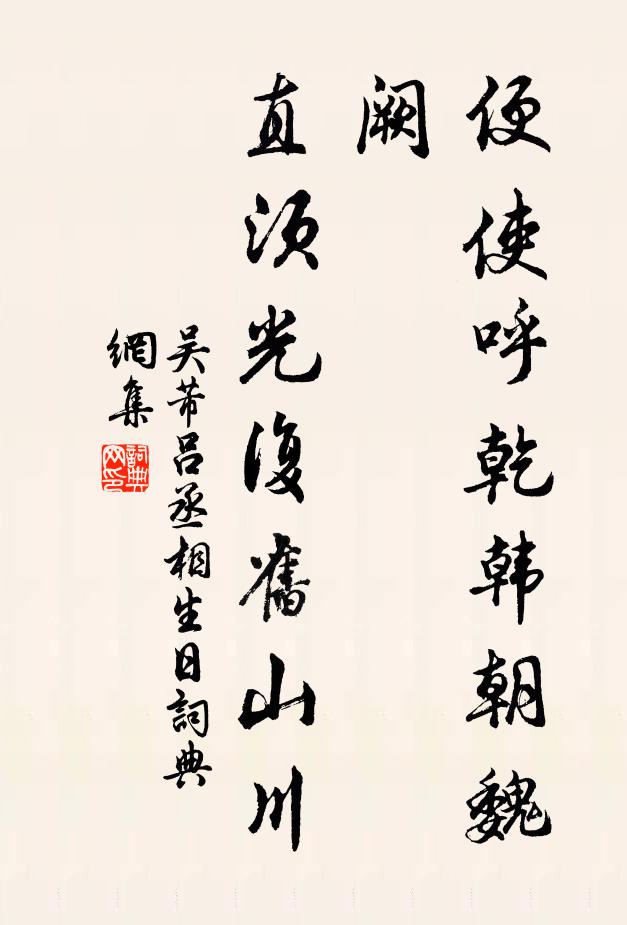 便使呼乾韩朝魏
阙
直须光復舊山川
吴芾吕丞相生日詞典
網集
詞典網印